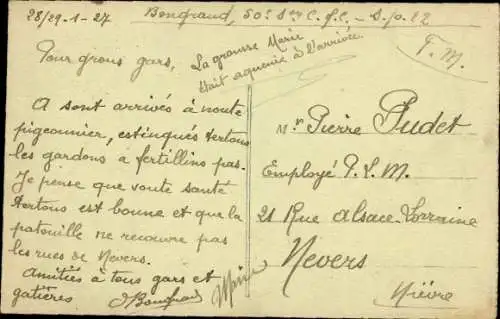 28/29-1-27 Bongrand, 50e C.
F.M.
La grousse Marie
était aquenie à l'arrivée.
Pour grous gars,
A sont arrivés à noute
pigeounier, estinqués tertous
les gardons à fertillins pas.
Je pense que voute santé
tertous est boune et que la
patouille ne recouvre pas
les rues de Nevers.
Amitiés à tous gars et
gatières. Bongrand Marie
Mr Pierre Pudet
Employé P.L.M.
21 Rue Alsace-Lorraine
Nevers
Nièvre